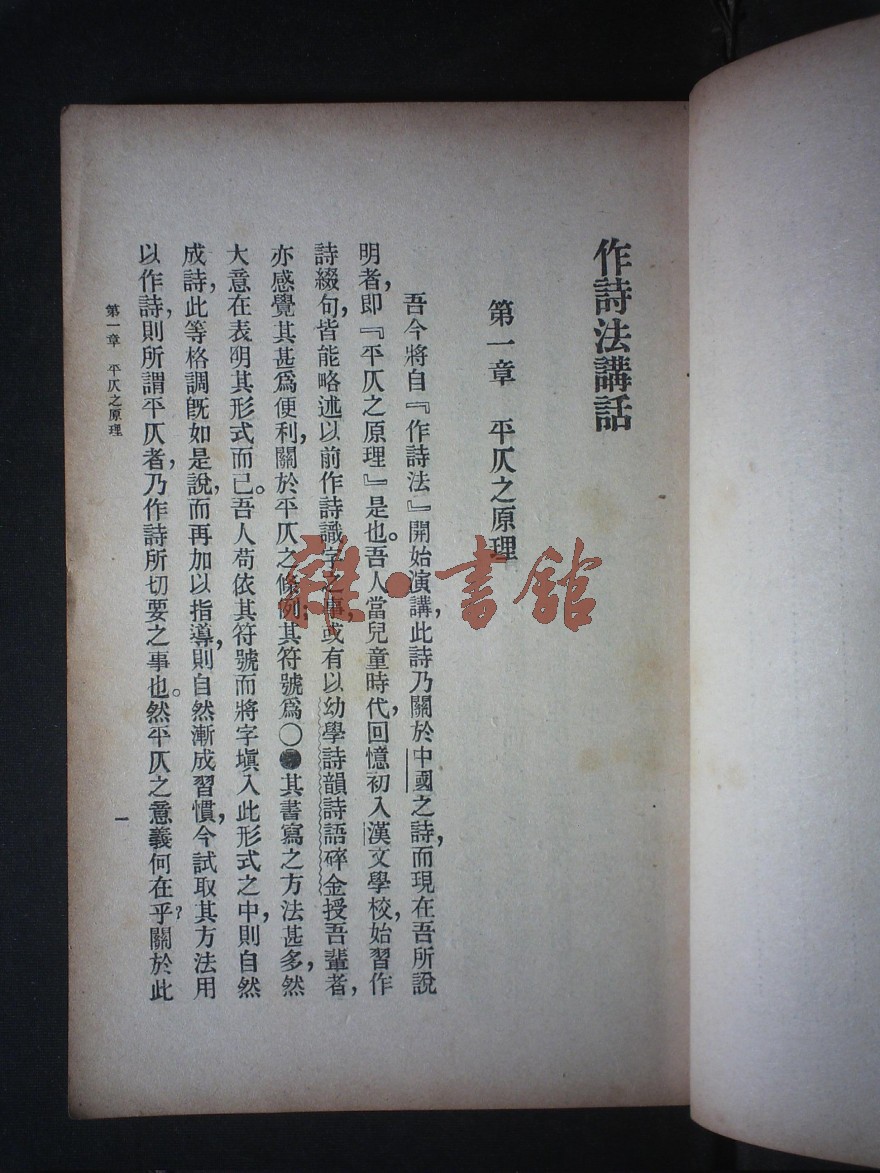 作詩法講話
第一章　平仄之原理
吾今將自『作詩法』開始演講，此詩乃關於中國之詩，而現在吾所說
明者，即『平仄之原理』是也。吾人當兒童時代，回憶初入漢文學校，始習作
詩綴句，皆能略述以前作詩識字之事，或有以幼學詩韻詩語碎金授吾輩者，
亦感覺其甚爲便利，關於平仄之條例，其符號爲○●其書寫之方法甚多，然
大意在表明其形式而已。吾人苟依其符號而將字塡入此形式之中，則自然
成詩，此等格調旣如是說，而再加以指導，則自然漸成習慣，今試取其方法用
以作詩，則所謂平仄者，乃作詩所切要之事也。然平仄之意義何在乎？關於此
第一章　平仄之原理
一
雜·書館